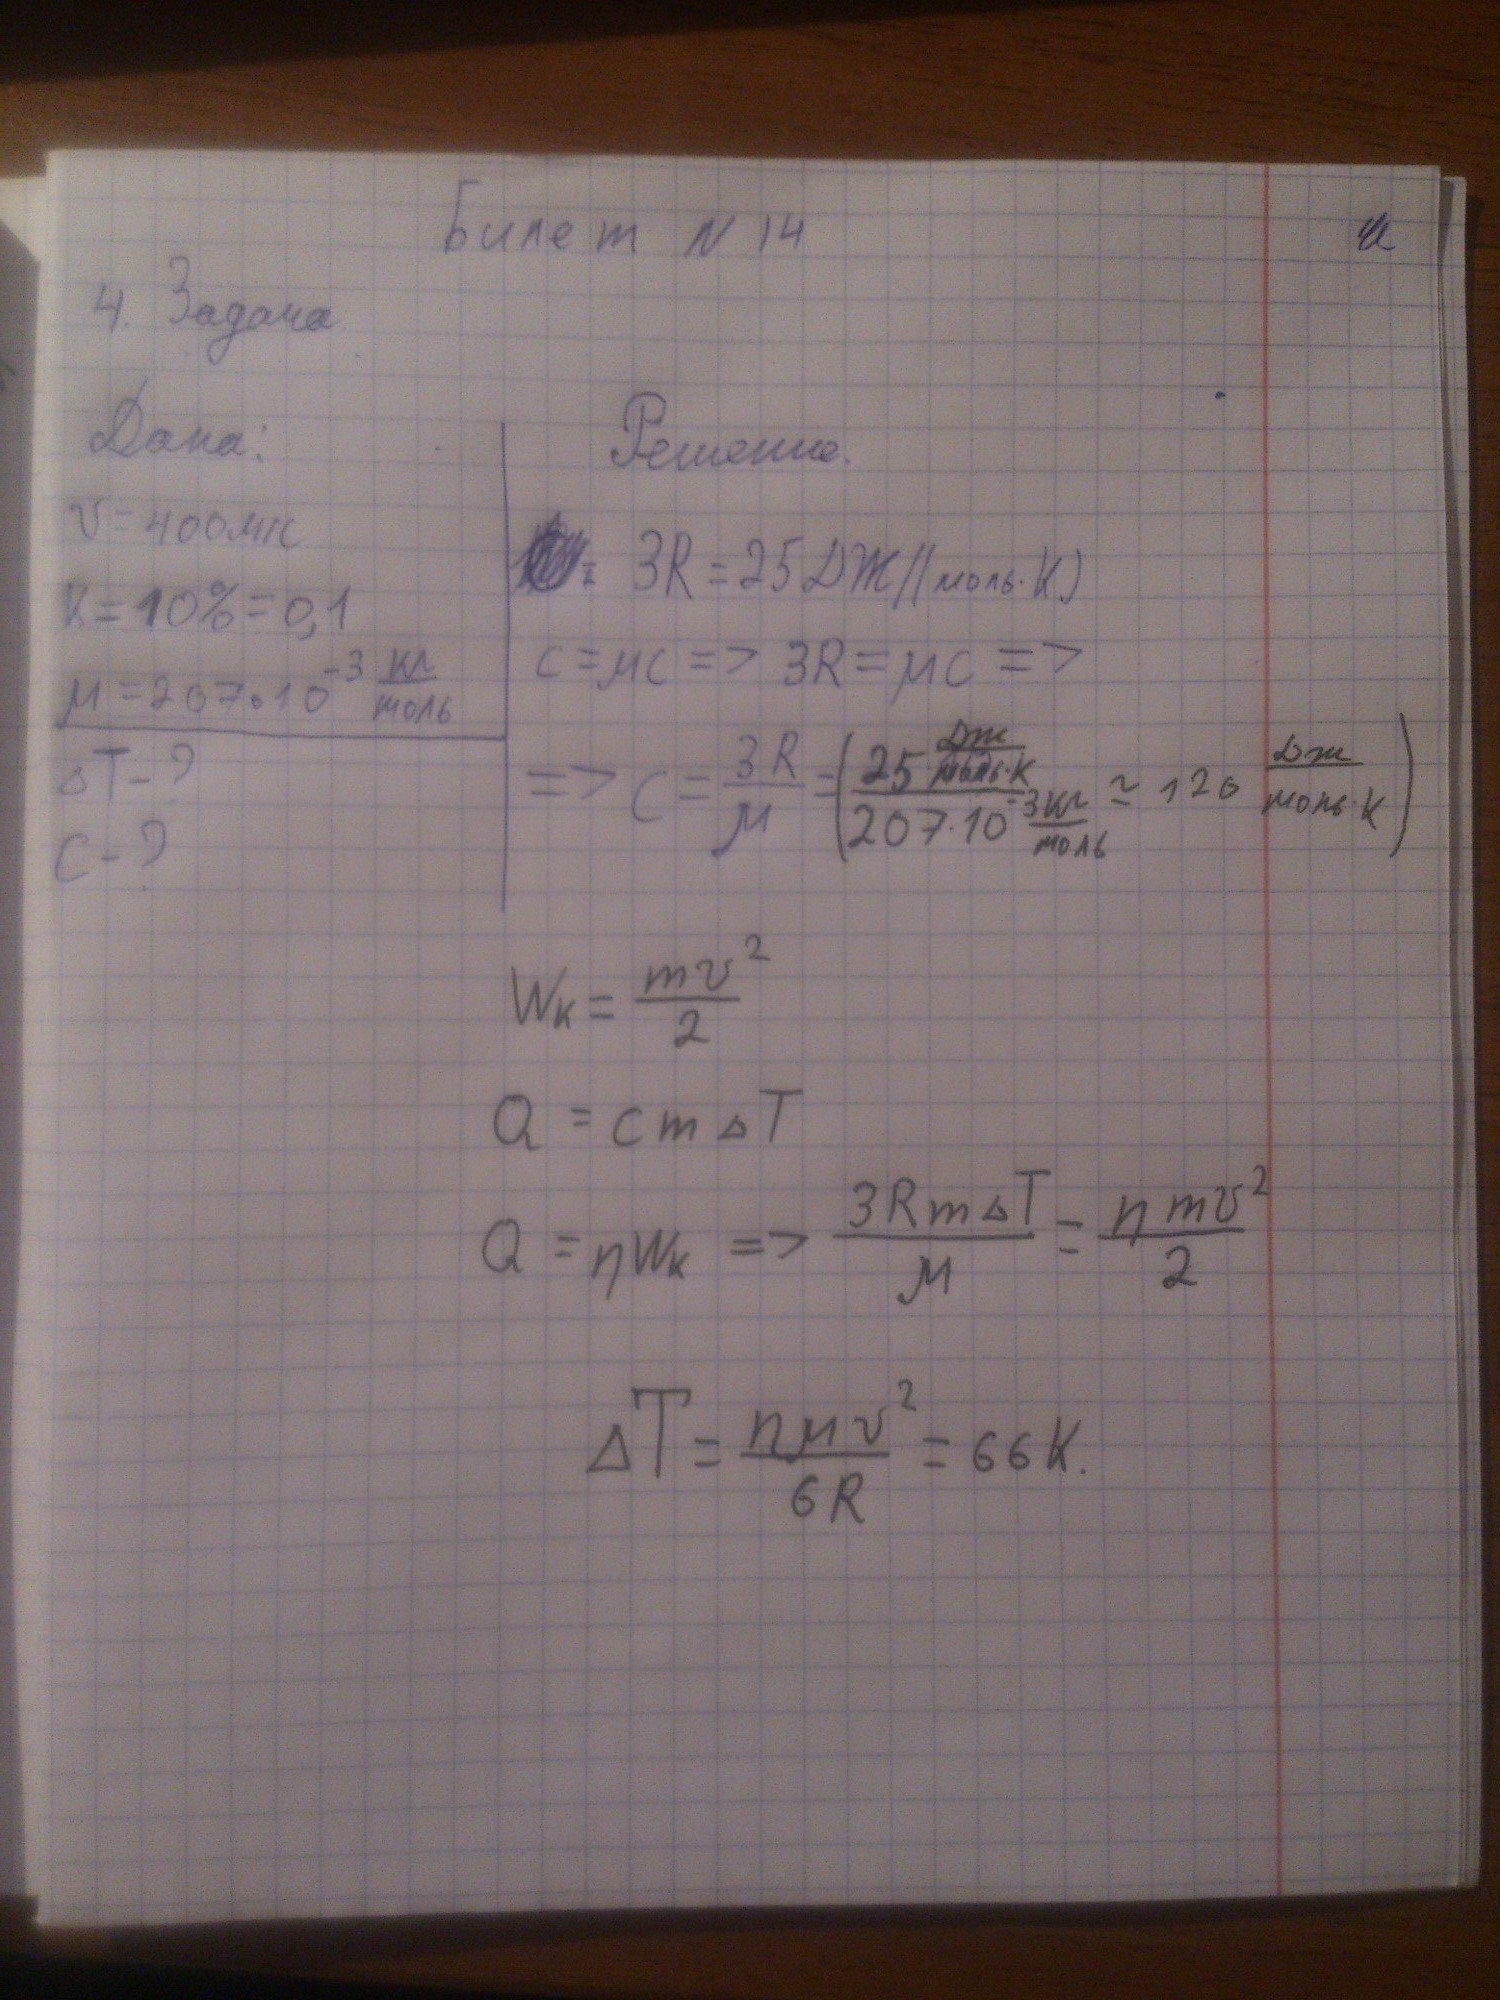 Билет N 14
4. Задача
Дано:
v = 400 м/с
К = 10% = 0,1
μ = 207·10⁻³ кг/моль
ΔT - ?
С - ?
Решение.
= 3R = 25 ДЖ/(моль·К)
C = μc => 3R = μc =>
=> C = 3R/μ = (25 Дж/моль·К / 207·10⁻³ кг/моль ≃ 120 Дж/моль·К)
Wк = mv²/2
Q = cmΔT
Q = ηWк => 3RmΔT/μ = ηmv²/2
ΔT = ημv²/6R = 66К.